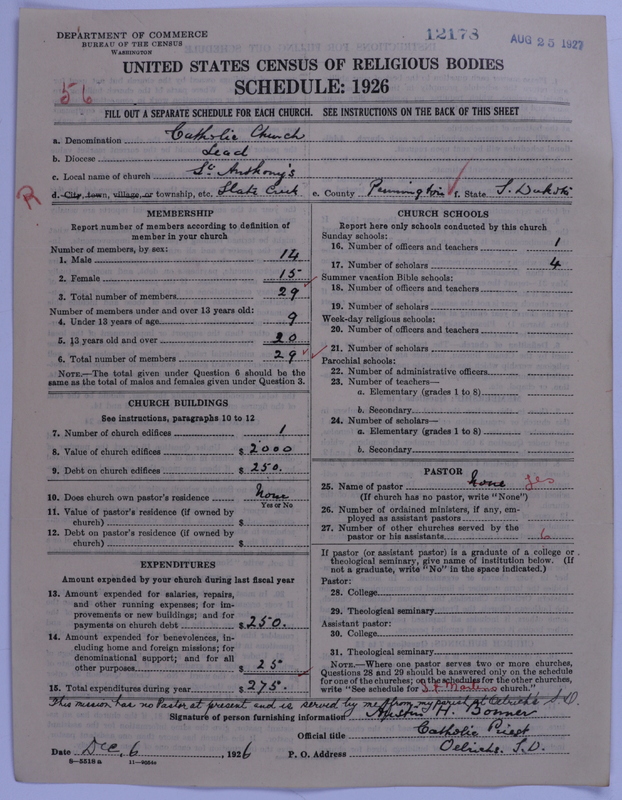 DEPARTMENT OF COMMERCE
BUREAU OF THE CENSUS
WASHINGTON
12178
AUG 25 1927
UNITED STATES CENSUS OF RELIGIOUS BODIES
SCHEDULE: 1926
56
FILL OUT A SEPARATE SCHEDULE FOR EACH CHURCH. SEE INSTRUCTIONS ON THE BACK OF THIS SHEET
a. Denomination Catholic Church
b. Diocese Lead
c. Local name of church St Anthony's
R
d. City, town, village, or township, etc. Slate Creek e. County Pennington f. State S. Dakota
MEMBERSHIP
Report number of members according to definition of member in your church
Number of members, by sex:
1. Male 14
2. Female 15
3. Total number of members 29
Number of members under and over 13 years old:
4. Under 13 years of age 9
5. 13 years old and over 20
6. Total number of members 29
NOTE.—The total given under Question 6 should be the same as the total of males and females given under Question 3.
CHURCH BUILDINGS
See instructions, paragraphs 10 to 12
7. Number of church edifices 1
8. Value of church edifices $ 2000
9. Debt on church edifices $ 250.
10. Does church own pastor's residence None
Yes or No
11. Value of pastor's residence (if owned by church) $
12. Debt on pastor's residence (if owned by church) $
EXPENDITURES
Amount expended by your church during last fiscal year
13. Amount expended for salaries, repairs, and other running expenses; for improvements or new buildings; and for payments on church debt $ 250.
14. Amount expended for benevolences, including home and foreign missions; for denominational support; and for all other purposes $ 25
15. Total expenditures during year $ 275.
CHURCH SCHOOLS
Report here only schools conducted by this church
Sunday schools:
16. Number of officers and teachers 1
17. Number of scholars 4
Summer vacation Bible schools:
18. Number of officers and teachers
19. Number of scholars
Week-day religious schools:
20. Number of officers and teachers
21. Number of scholars
Parochial schools:
22. Number of administrative officers
23. Number of teachers—
a. Elementary (grades 1 to 8)
b. Secondary
24. Number of scholars—
a. Elementary (grades 1 to 8)
b. Secondary
PASTOR
25. Name of pastor None yes
(If church has no pastor, write "None")
26. Number of ordained ministers, if any, employed as assistant pastors
27. Number of other churches served by the pastor or his assistants 6
If pastor (or assistant pastor) is a graduate of a college or theological seminary, give name of institution below. (If not a graduate, write "No" in the space indicated.)
Pastor:
28. College
29. Theological seminary
Assistant pastor:
30. College
31. Theological seminary
NOTE.—Where one pastor serves two or more churches, Questions 28 and 29 should be answered only on the schedule for one of the churches; on the schedules for the other churches, write "See schedule for church."
This mission has no Pastor at present and is served by me from my parish at Oelrichs S.D.
Signature of person furnishing information Austin H. Bonner
Official title Catholic Priest
Date Dec, 6, 1926 P. O. Address Oelrichs. S.D.
8-5518 a